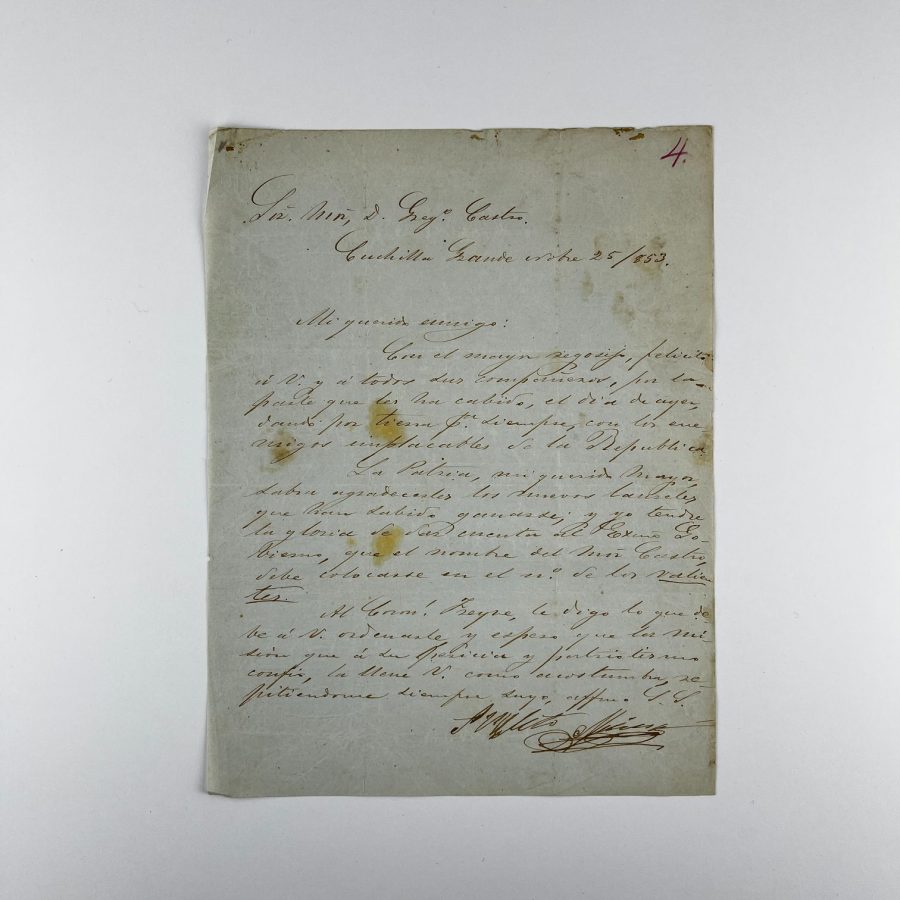 4.
Sor. Mor, D. Grego. Castro.
Cuchilla Grande 25/853.
Mi querido amigo:
Con el mayor regosijo, felicito
á V. y á todos sus compañeros, por la
parte que les ha cabido, el dia de ayer,
dando por tierra pa. siempre, con los ene-
migos implacables de la Republica.
La Patria, mi querido Mayor,
sabra agradecerles los nuevos laureles
que han sabido ganarse; y yo tendre
la gloria de dar cuenta al Exmo Go-
bierno, que el nombre del Mor Castro,
debe colocarse en el no. de los valien-
tes.
Al Coronl. Freyre, le digo lo que de
be á V. ordenarle, y espero que la mi
sión que á su pericia y patriotismo
confio, la llene V. como acostumbra, re
pitiendome siempre suyo, affmo S. S.